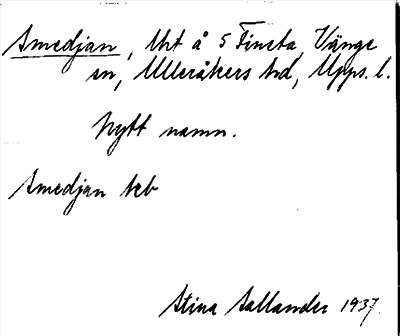 Smedjan, Uht å 5 Finsta, Vänge
sn, Ulleråkers hd, Upps. l.
Nytt namn.
Smedjan
Stina Sallander 1937.